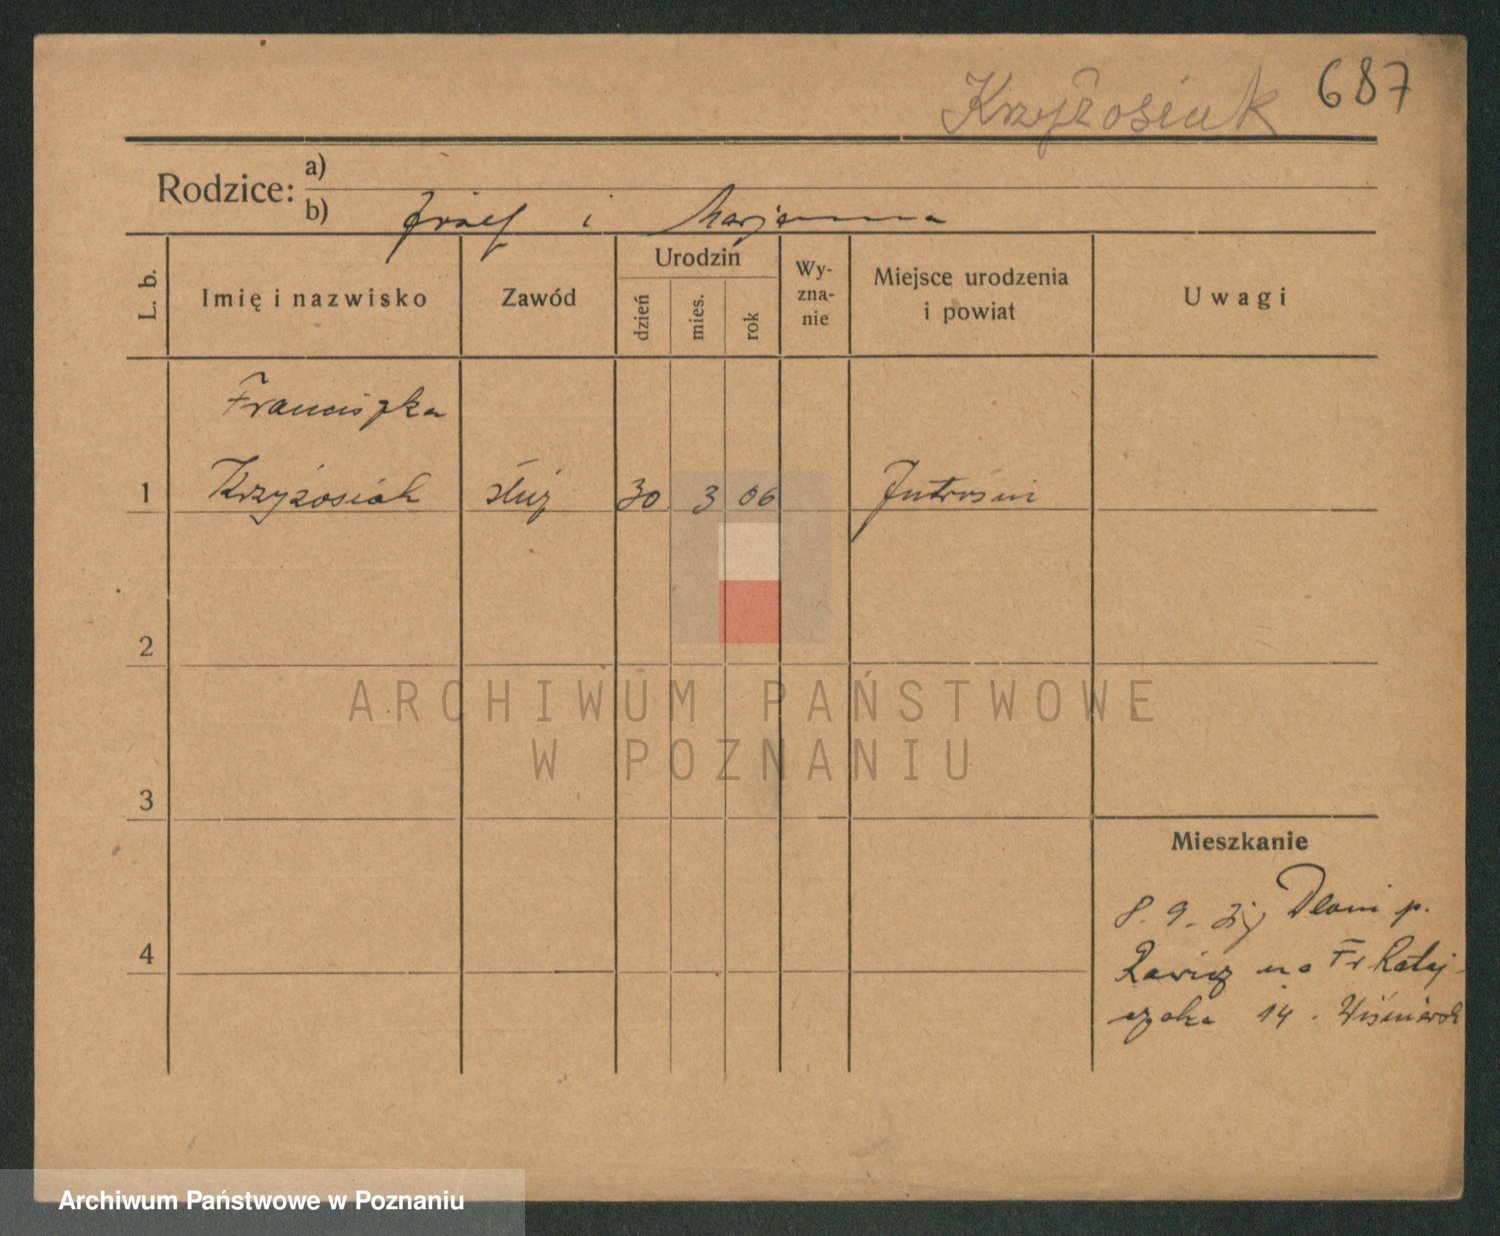 Krzyżosiak 687
Rodzice: a)
b) Józef i Marjanna
L. b.
Imię i nazwisko
Zawód
Urodzin
dzień
mies.
rok
Wy-
zna-
nie
Miejsce urodzenia
i powiat
Uwagi
Franciszka
1 Krzyżosiak służ 30 3 06 Jutrosin
2
ARCHIWUM PAŃSTWOWE
W POZNANIU
3
Mieszkanie
8. 9. Dłoni p.
4
Rawicz na Fr Rataj-
czaka 14.
Archiwum Państwowe w Poznaniu